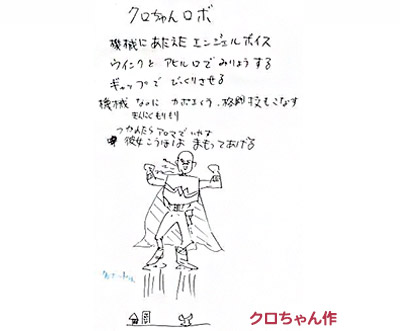 クロちゃんロボ
機械にあたえた エンジェルボイス
ウインクと アヒル口でみりょうする
ギャップで びっくりさせる
機械 なのに カポエイラ、格闘技もこなす
きんにくもりもり
つかれたらアロマでいやす
彼女こうほは まもってあげる
クロちゃん作